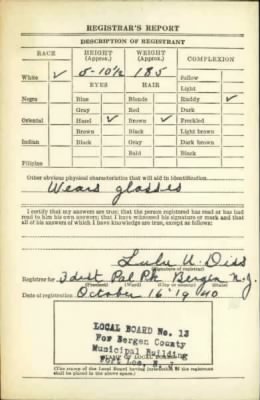 REGISTRAR'S REPORT
DESCRIPTION OF REGISTRANT
RACE HEIGHT (Approx.) WEIGHT (Approx.) COMPLEXION
White ✓ 5-10½ 185 Sallow
EYES HAIR Light
Negro Blue Blonde Ruddy ✓
Gray Red Dark
Oriental Hazel ✓ Brown ✓ Freckled
Brown Black Light brown
Indian Black Gray Dark brown
Bald Black
Filipino
Other obvious physical characteristics that will aid in identification
Wears glasses
I certify that my answers are true; that the person registered has read or has had
read to him his own answers; that I have witnessed his signature or mark and that
all of his answers of which I have knowledge are true, except as follows:
Lulu U. Diss
(Signature of registrar)
Registrar for 3 dist Pal Pk Bergen N.J.
(Precinct) (Ward) (City or county) (State)
Date of registration October 16 '1940
LOCAL BOARD No. 13
For Bergen County
Municipal Building
Fort Lee, N. J.
(STAMP OF LOCAL BOARD)
(The stamp of the Local Board having jurisdiction of the registrant
shall be placed in the above space.)